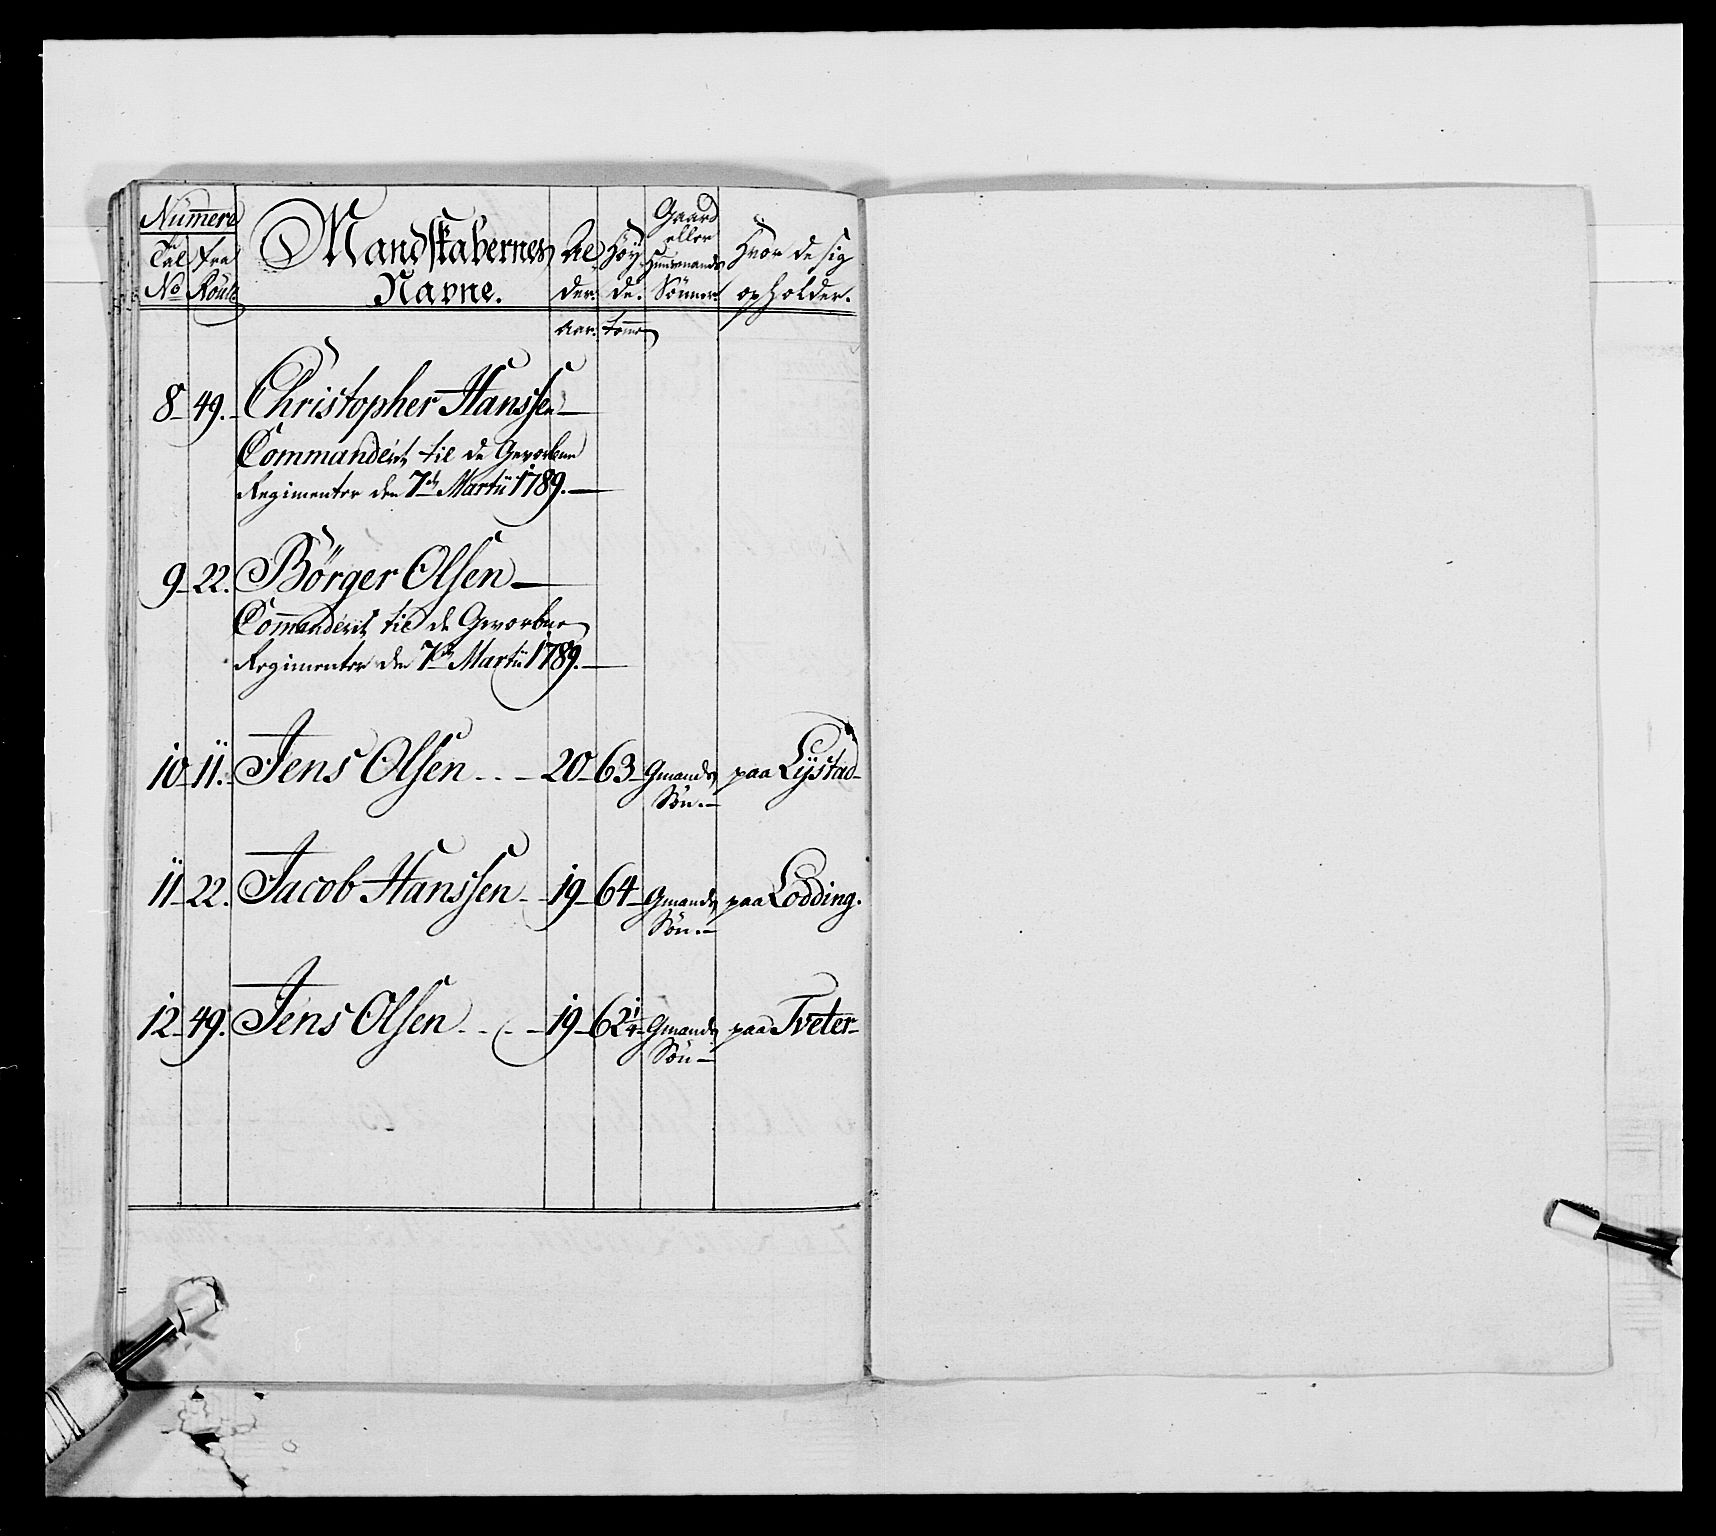 Numere
Tal No
fra Roulle
Mandskabernes Navne.
Al der.
Höy de.
Gaard eller Huusmands Sönner.
Hvor de sig opholder.
Aar. tomr
8 - 49. Christopher Hanssen -
Commanderit til de Gevorbne
Regimenter den 7de Martii 1789. -
9 - 22. Börger Olsen -
Commanderit til de Gevorbne
Regimenter den 7de Martii 1789. -
10 - 11. Jens Olsen - - - 20 - 63 - Gmands paa Lystad -
Sön. -
11 - 22. Jacob Hanssen - - 19 - 64 - Gmands paa Lodding.
Sön. -
12 - 49. Jens Olsen - - - 19 - 62 1/4 - Gmands paa Tveter -
Sön -